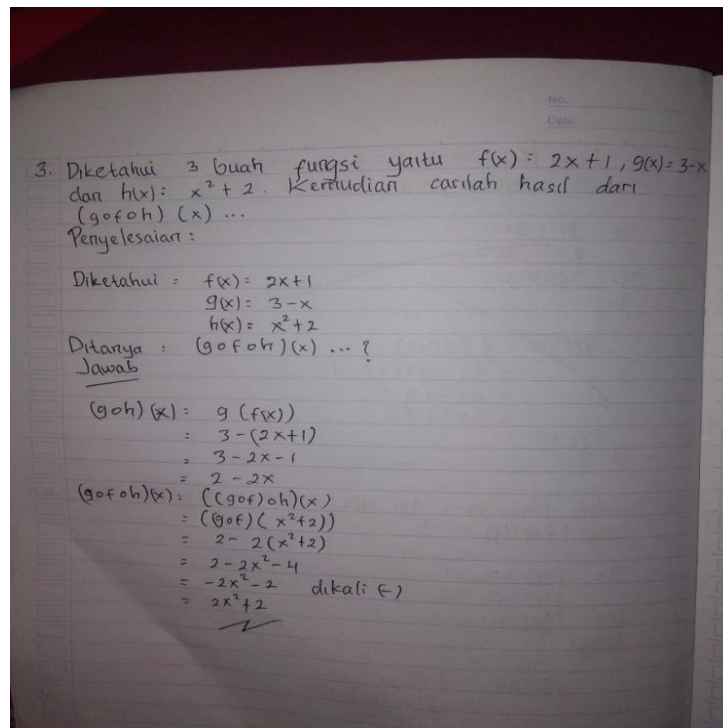 No.
Date
3. Diketahui 3 buah fungsi yaitu f(x) = 2x+1, g(x) = 3-x
dan h(x) = x² + 2. Kemudian carilah hasil dari
(gofoh) (x) ...
Penyelesaian :
Diketahui = f(x) = 2x+1
g(x) = 3-x
h(x) = x²+2
Ditanya : (gofoh)(x) ... ?
Jawab
(goh)(x) = g (f(x))
= 3-(2x+1)
= 3-2x-1
= 2-2x
(gofoh)(x) = ((gof)oh)(x)
= ((gof)(x²+2))
= 2- 2(x²+2)
= 2-2x²-4
= -2x²-2 dikali (-)
= 2x²+2